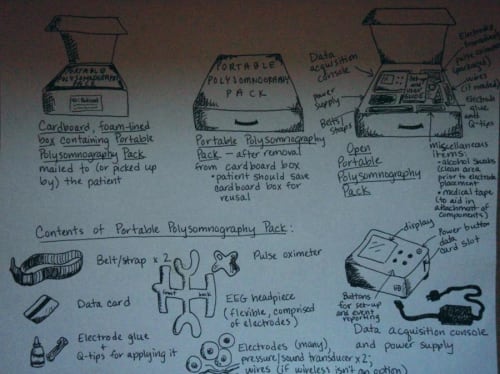 PORTABLE
POLYSOMNOGRAPHY
PACK
Cardboard, foam-lined
box containing Portable
Polysomnography Pack
mailed to (or picked up
by) the patient
PORTABLE
POLYSOMNOGRAPHY
PACK
Portable Polysomnography
Pack — after removal
from cardboard box
• patient should save
cardboard box for
reusal
Data
acquisition
console
power
supply
Belts/
straps
Open
Portable
Polysomnography
Pack
Electrodes,
transducers
pulse oximeter
(packaged)
wires
(if needed)
Electrode
glue and
Q-tips
miscellaneous
items:
• alcohol swabs
(clean area
prior to electrode
placement
• medical tape
(to aid in
attachment of
components)
Contents of Portable Polysomnography Pack:
Belt/strap x 2
Data card
Electrode glue
+
Q-tips for applying it
front
back
Pulse oximeter
EEG headpiece
(flexible, comprised
of electrodes)
Electrodes (many)
pressure/sound transducer x 2;
wires (if wireless isn't an option)
display
Power button
data
card slot
Buttons
for set-up
and event
reporting
Data acquisition console
and power supply